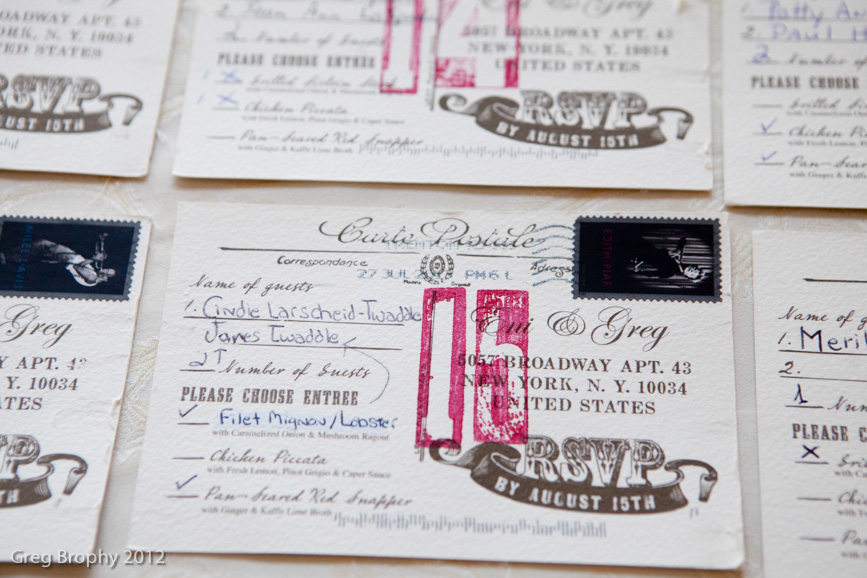 2.
2 Number of Guests
PLEASE CHOOSE ENTRÉE
1 x Grilled Sirloin Steak
with Caramelized Onion &
1 x Chicken Piccata
with Fresh Lemon, Pinot Grigio & Caper Sauce
Pan-Seared Red Snapper
with Ginger & Kaffir Lime Broth
14
& Greg
5057 BROADWAY APT. 43
NEW YORK, N. Y. 10034
UNITED STATES
RSVP
BY AUGUST 15TH
10034
UNITED STATES
RSVP
AUGUST 15TH
Patty
2. Paul
2 Number of
PLEASE CHOOSE
Grilled
with Caramelized
✓ Chicken
with Fresh Lemon
✓ Pan-Seared
with Ginger & Kaffir
MILES DAVIS
& Greg
APT. 43
N. Y. 10034
STATES
RSVP
15TH
Carte Postale
Correspondance
27 JUL 20
PM6 L
EDITH PIAF
Name of guests
1. Cindie Larscheid-Twaddle
James Twaddle
2 Number of Guests
PLEASE CHOOSE ENTRÉE
✓ Filet Mignon/Lobster
with Caramelized Onion & Mushroom Ragout
Chicken Piccata
with Fresh Lemon, Pinot Grigio & Caper Sauce
✓ Pan-Seared Red Snapper
with Ginger & Kaffir Lime Broth
16
Eni & Greg
5057 BROADWAY APT. 43
NEW YORK, N. Y. 10034
UNITED STATES
RSVP
BY AUGUST 15TH
Name of
1. Meril
2.
1
PLEASE
x
with
with
Greg Brophy 2012